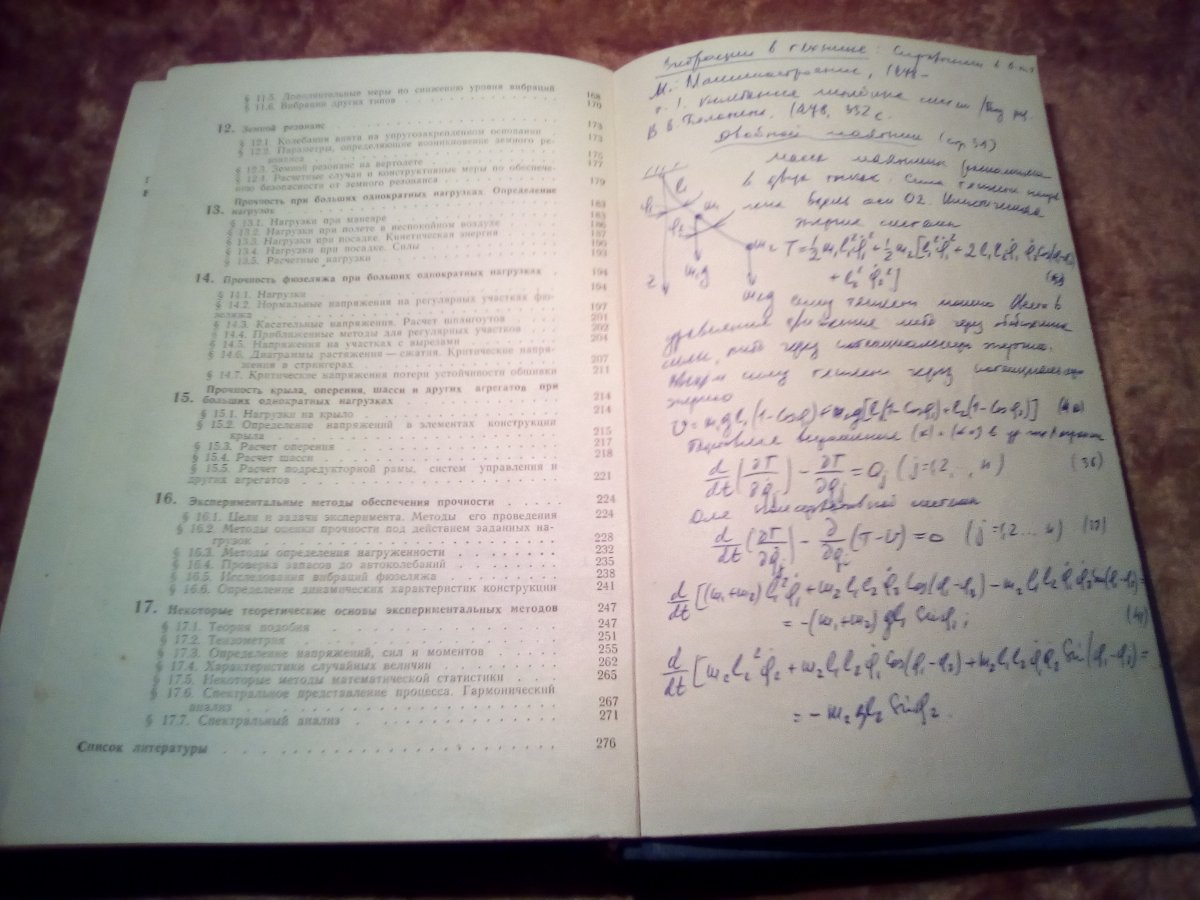 § 11.5. Дополнительные меры по снижению уровня вибраций 168
§ 11.6. Вибрации других типов 170
12. Земной резонанс 173
§ 12.1 Колебания винта на упругозакрепленном основании 173
§ 12.2. Параметры, определяющие возникновение земного ре-
зонанса 175
§ 12.3. Земной резонанс на вертолете 177
§ 12.4. Расчетные случаи и конструктивные меры по обеспече-
нию безопасности от земного резонанса 179
Прочность при больших однократных нагрузках. Определение
13. нагрузок 183
§ 13.1. Нагрузки при маневре 183
§ 13.2. Нагрузки при полете в неспокойном воздухе 186
§ 13.3. Нагрузки при посадке. Кинетическая энергия 187
§ 13.4. Нагрузки при посадке. Силы 190
§ 13.5. Расчетные нагрузки 193
14. Прочность фюзеляжа при больших однократных нагрузках 194
§ 14.1. Нагрузки 194
§ 14.2. Нормальные напряжения на регулярных участках фю-
зеляжа 197
§ 14.3. Касательные напряжения. Расчет шпангоутов 201
§ 14.4. Приближенные методы для регулярных участков 202
§ 14.5. Напряжения на участках с вырезами 204
§ 14.6. Диаграммы растяжения — сжатия. Критические напря-
жения в стрингерах 207
§ 14.7. Критические напряжения потери устойчивости обшивки 211
Прочность крыла, оперения, шасси и других агрегатов при
15. больших однократных нагрузках 214
§ 15.1. Нагрузки на крыло 214
§ 15.2. Определение напряжений в элементах конструкции
крыла 215
§ 15.3. Расчет оперения 217
§ 15.4. Расчет шасси 218
§ 15.5. Расчет подредукторной рамы, систем управления и
других агрегатов 221
16. Экспериментальные методы обеспечения прочности 224
§ 16.1. Цели и задачи эксперимента. Методы его проведения 224
§ 16.2. Методы оценки прочности под действием заданных на-
грузок 228
§ 16.3. Методы определения нагруженности 232
§ 16.4. Проверка запасов до автоколебаний 235
§ 16.5. Исследования вибраций фюзеляжа 238
§ 16.6. Определение динамических характеристик конструкции 241
17. Некоторые теоретические основы экспериментальных методов 247
§ 17.1. Теория подобия 247
§ 17.2. Тензометрия 251
§ 17.3. Определение напряжений, сил и моментов 255
§ 17.4. Характеристики случайных величин 262
§ 17.5. Некоторые методы математической статистики 265
§ 17.6. Спектральное представление процесса. Гармонический
анализ 267
§ 17.7. Спектральный анализ 271
Список литературы 276
Вибрации в технике: Справочник в 6-т
М. Машиностроение, 1978-
т. 1. Колебания линейных систем / Под ред.
В. В. Болотина, 1978, 352 с.
Двойной маятник
масса маятника
в двух точках. Сила тяжести
вдоль оси OZ. Кинетическая
энергия системы
l₁
m₁
m₂
z
m₁g
m₂g
T = ½ m₁l₁²φ̇₁² + ½ m₂[l₁²φ̇₁² + 2l₁l₂φ̇₁φ̇₂cos(φ₁-φ₂)
+ l₂²φ̇₂²]
силу тяжести можно ввести в
уравнения движения либо через обобщенные
силы, либо через потенциальную энергию.
Введем силу тяжести через потенциальную
энергию
U = m₁gl₁(1-cosφ₁) + m₂g[l₁(1-cosφ₁)+l₂(1-cosφ₂)] (40)
Подставляя выражения
d/dt(∂T/∂q̇j) - ∂T/∂qj = Qj (j=1,2..., n) (36)
Для консервативной системы
d/dt(∂T/∂q̇j) - ∂/∂qj (T-U) = 0 (j=1,2... n)
d/dt[(m₁+m₂)l₁²φ̇₁ + m₂l₁l₂φ̇₂cos(φ₁-φ₂) - m₂l₁l₂φ̇₁φ̇₂sin(φ₁-φ₂) =
= -(m₁+m₂)gl₁ sinφ₁; (41)
d/dt[m₂l₂²φ̇₂ + m₂l₁l₂φ̇₁cos(φ₁-φ₂) + m₂l₁l₂φ̇₁φ̇₂ sin(φ₁-φ₂) =
= -m₂gl₂ sinφ₂.